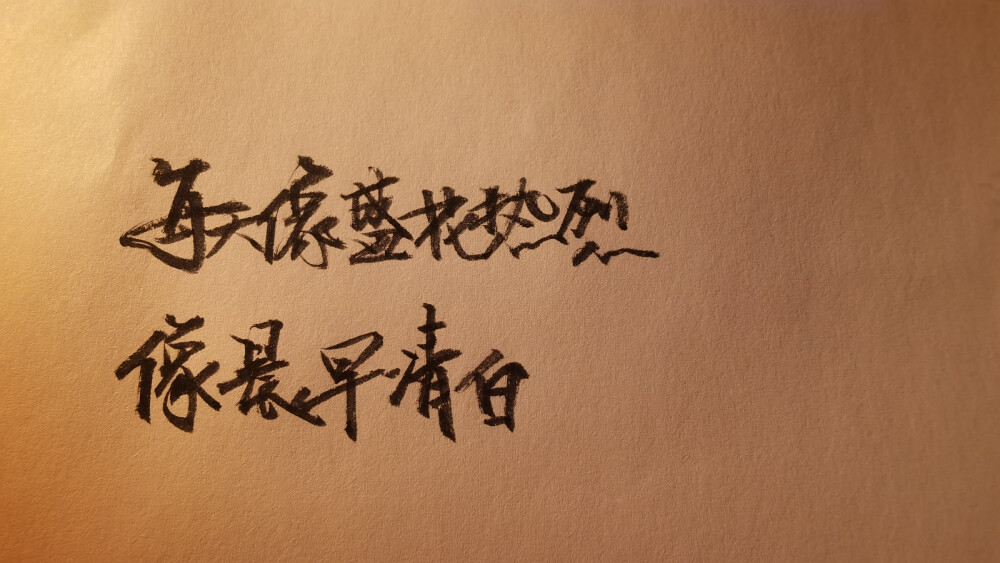 每天像盛花热烈
像晨早清白